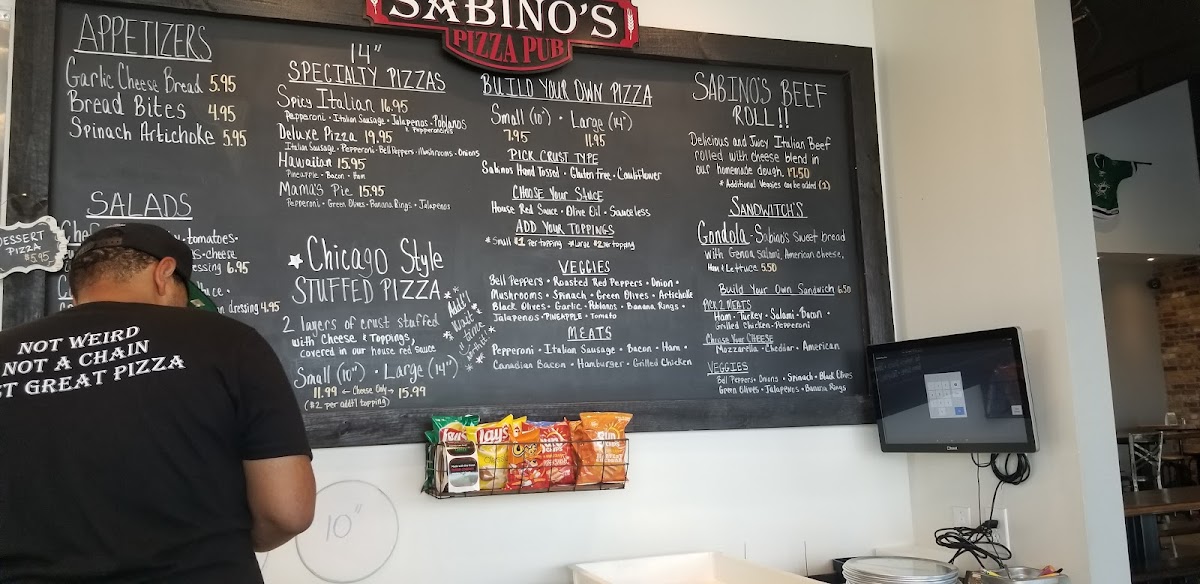 SABINO'S
PIZZA PUB
APPETIZERS
Garlic Cheese Bread 5.95
Bread Bites 4.95
Spinach Artichoke 5.95
SALADS
tomatoes •
cheese
6.95
dressing 4.95
DESSERT
PIZZA
$5.95
14"
SPECIALTY PIZZAS
Spicy Italian 16.95
Pepperoni • Italian Sausage • Jalapenos • Poblanos
Deluxe Pizza 19.95 * Pepperoncinis
Italian Sausage • Pepperoni • Bell Peppers • Mushrooms • Onions
Hawaiian 15.95
Pineapple • Bacon • Ham
Mama's Pie 15.95
Pepperoni • Green Olives • Banana Rings • Jalapenos
Chicago Style
STUFFED PIZZA
Addt'l
Wait
time
2 layers of crust stuffed
with cheese & Toppings,
covered in our house red sauce
Small (10") • Large (14")
11.99 ← Cheese Only → 15.99
($2 per addt'l topping)
BUILD YOUR OWN PIZZA
Small (10") • Large (14")
7.95 11.95
PICK CRUST TYPE
Sabinos Hand Tossed • Gluten Free • Cauliflower
CHOOSE YOUR SAUCE
House Red Sauce • Olive Oil • Sauceless
ADD YOUR TOPPINGS
* Small $1 per topping * Large $2 per topping
VEGGIES
Bell Peppers • Roasted Red Peppers • Onion •
Mushrooms • Spinach • Green Olives • Artichoke
Black Olives • Garlic • Poblanos • Banana Rings •
Jalapenos • PINEAPPLE • Tomato
MEATS
Pepperoni • Italian Sausage • Bacon • Ham •
Canadian Bacon • Hamburger • Grilled Chicken
SABINO'S BEEF
ROLL!!
Delicious and Juicy Italian Beef
rolled with cheese blend in
our homemade dough. 17.50
* Additional Veggies can be added (1)
SANDWITCH'S
Gondola - Sabino's Sweet bread
with Genoa salami, American cheese,
Ham & Lettuce 5.50
Build Your Own Sandwich 6.50
PICK 2 MEATS
Ham • Turkey • Salami • Bacon •
Grilled Chicken • Pepperoni
Choose Your CHEESE
Mozzarella • Cheddar • American
VEGGIES
Bell Peppers • Onions • Spinach • Black Olives
Green Olives • Jalapenos • Banana Rings
NOT WEIRD
NOT A CHAIN
ST GREAT PIZZA
Lay's
Lay's
SUN
10"